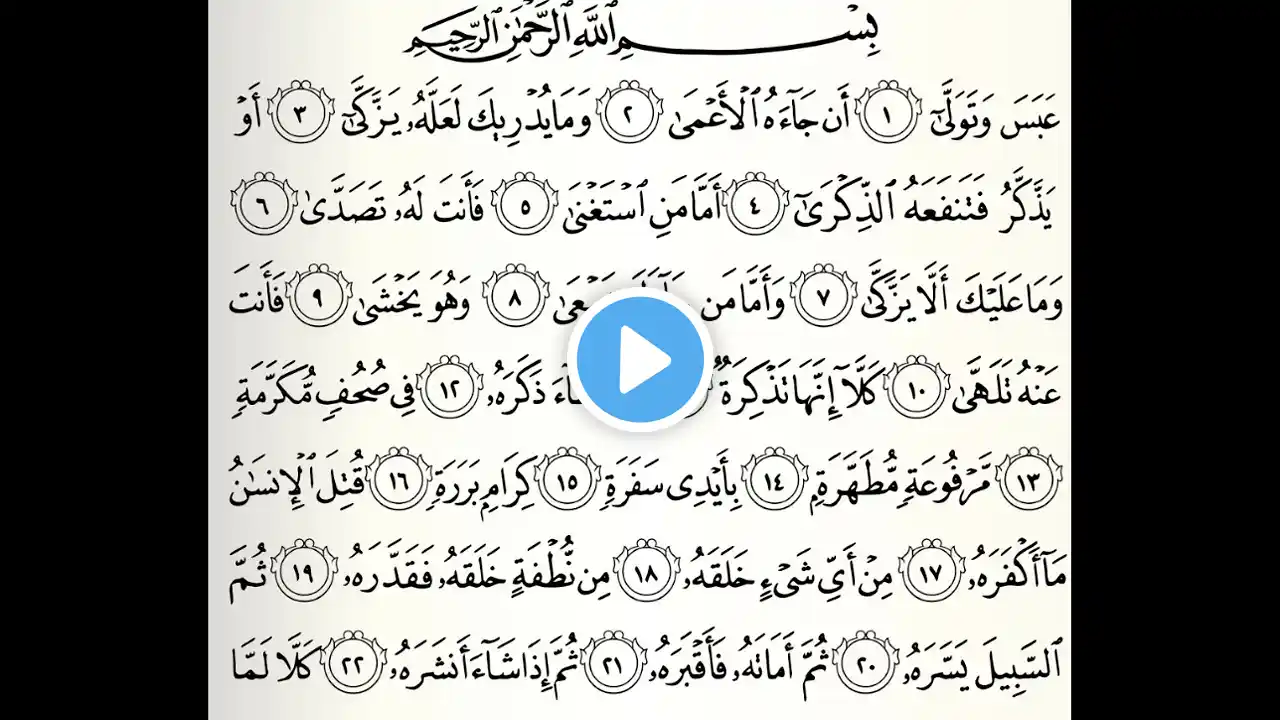 بِسْمِ ٱللَّهِ ٱلرَّحْمَٰنِ ٱلرَّحِيمِ
عَبَسَ وَتَوَلَّىٰٓ ١ أَن جَآءَهُ ٱلْأَعْمَىٰ ٢ وَمَا يُدْرِيكَ لَعَلَّهُۥ يَزَّكَّىٰٓ ٣ أَوْ
يَذَّكَّرُ فَتَنفَعَهُ ٱلذِّكْرَىٰٓ ٤ أَمَّا مَنِ ٱسْتَغْنَىٰ ٥ فَأَنتَ لَهُۥ تَصَدَّىٰ ٦
وَمَا عَلَيْكَ أَلَّا يَزَّكَّىٰ ٧ وَأَمَّا مَن ٨ وَهُوَ يَخْشَىٰ ٩ فَأَنتَ
عَنْهُ تَلَهَّىٰ ١٠ كَلَّآ إِنَّهَا تَذْكِرَةٌ ذَكَرَهُۥ ١٢ فِى صُحُفٍ مُّكَرَّمَةٍ
١٣ مَّرْفُوعَةٍ مُّطَهَّرَةٍۭ ١٤ بِأَيْدِى سَفَرَةٍ ١٥ كِرَامٍۭ بَرَرَةٍ ١٦ قُتِلَ ٱلْإِنسَٰنُ
مَآ أَكْفَرَهُۥ ١٧ مِنْ أَىِّ شَىْءٍ خَلَقَهُۥ ١٨ مِن نُّطْفَةٍ خَلَقَهُۥ فَقَدَّرَهُۥ ١٩ ثُمَّ
ٱلسَّبِيلَ يَسَّرَهُۥ ٢٠ ثُمَّ أَمَاتَهُۥ فَأَقْبَرَهُۥ ٢١ ثُمَّ إِذَا شَآءَ أَنشَرَهُۥ ٢٢ كَلَّا لَمَّا